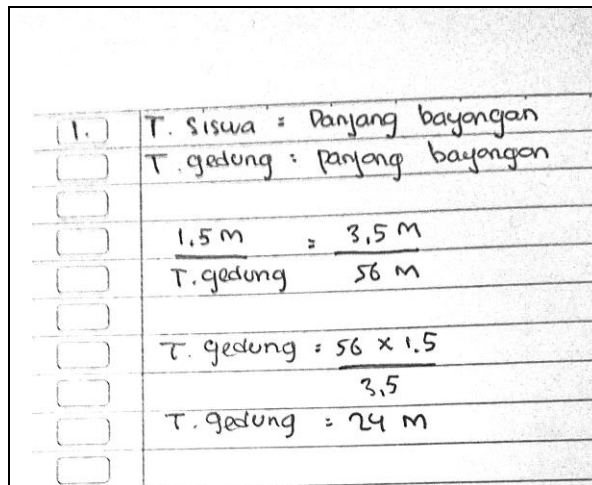 1. T. Siswa : Panjang bayangan
T. gedung : panjang bayangan
1.5 m = 3,5 m
T. gedung 56 m
T. gedung : 56 x 1.5
3,5
T. gedung : 24 m